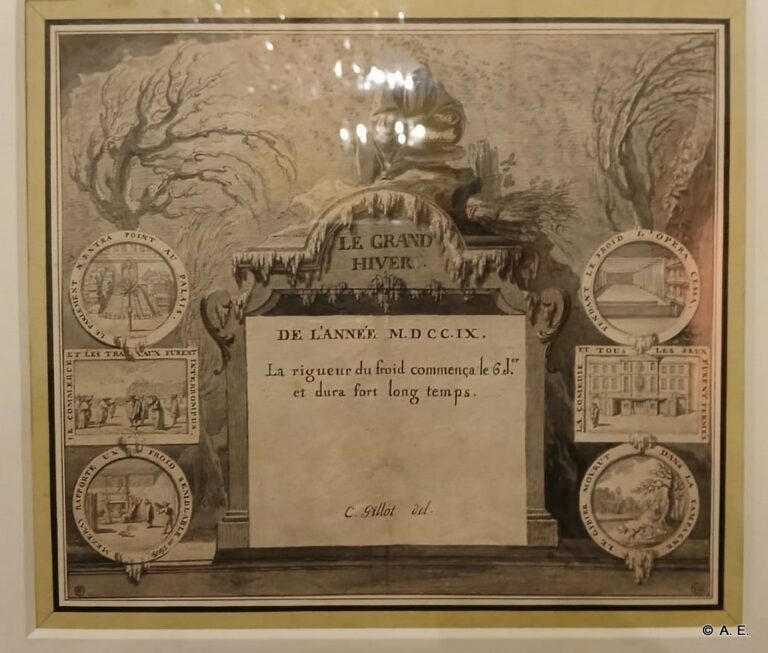 LE GRAND
HIVER
DE L'ANNÉE M.DCC.IX.
La rigueur du froid commença le 6 J.er
et dura fort long temps.
C. Gillot del.
LE PARLEMENT N'ENTRA POINT AU PALAIS.
LE COMMERCE ET LES TRAVAUX FURENT INTERROMPUS.
MEZERAI RAPPORTE UN FROID SEMBLABLE
PENDANT LE FROID L'OPERA CESSA.
LA COMEDIE ET TOUS LES JEUX FURENT FERMÉS
LE GIBIER MOURUT DANS LA CAMPAGNE
© A. E.